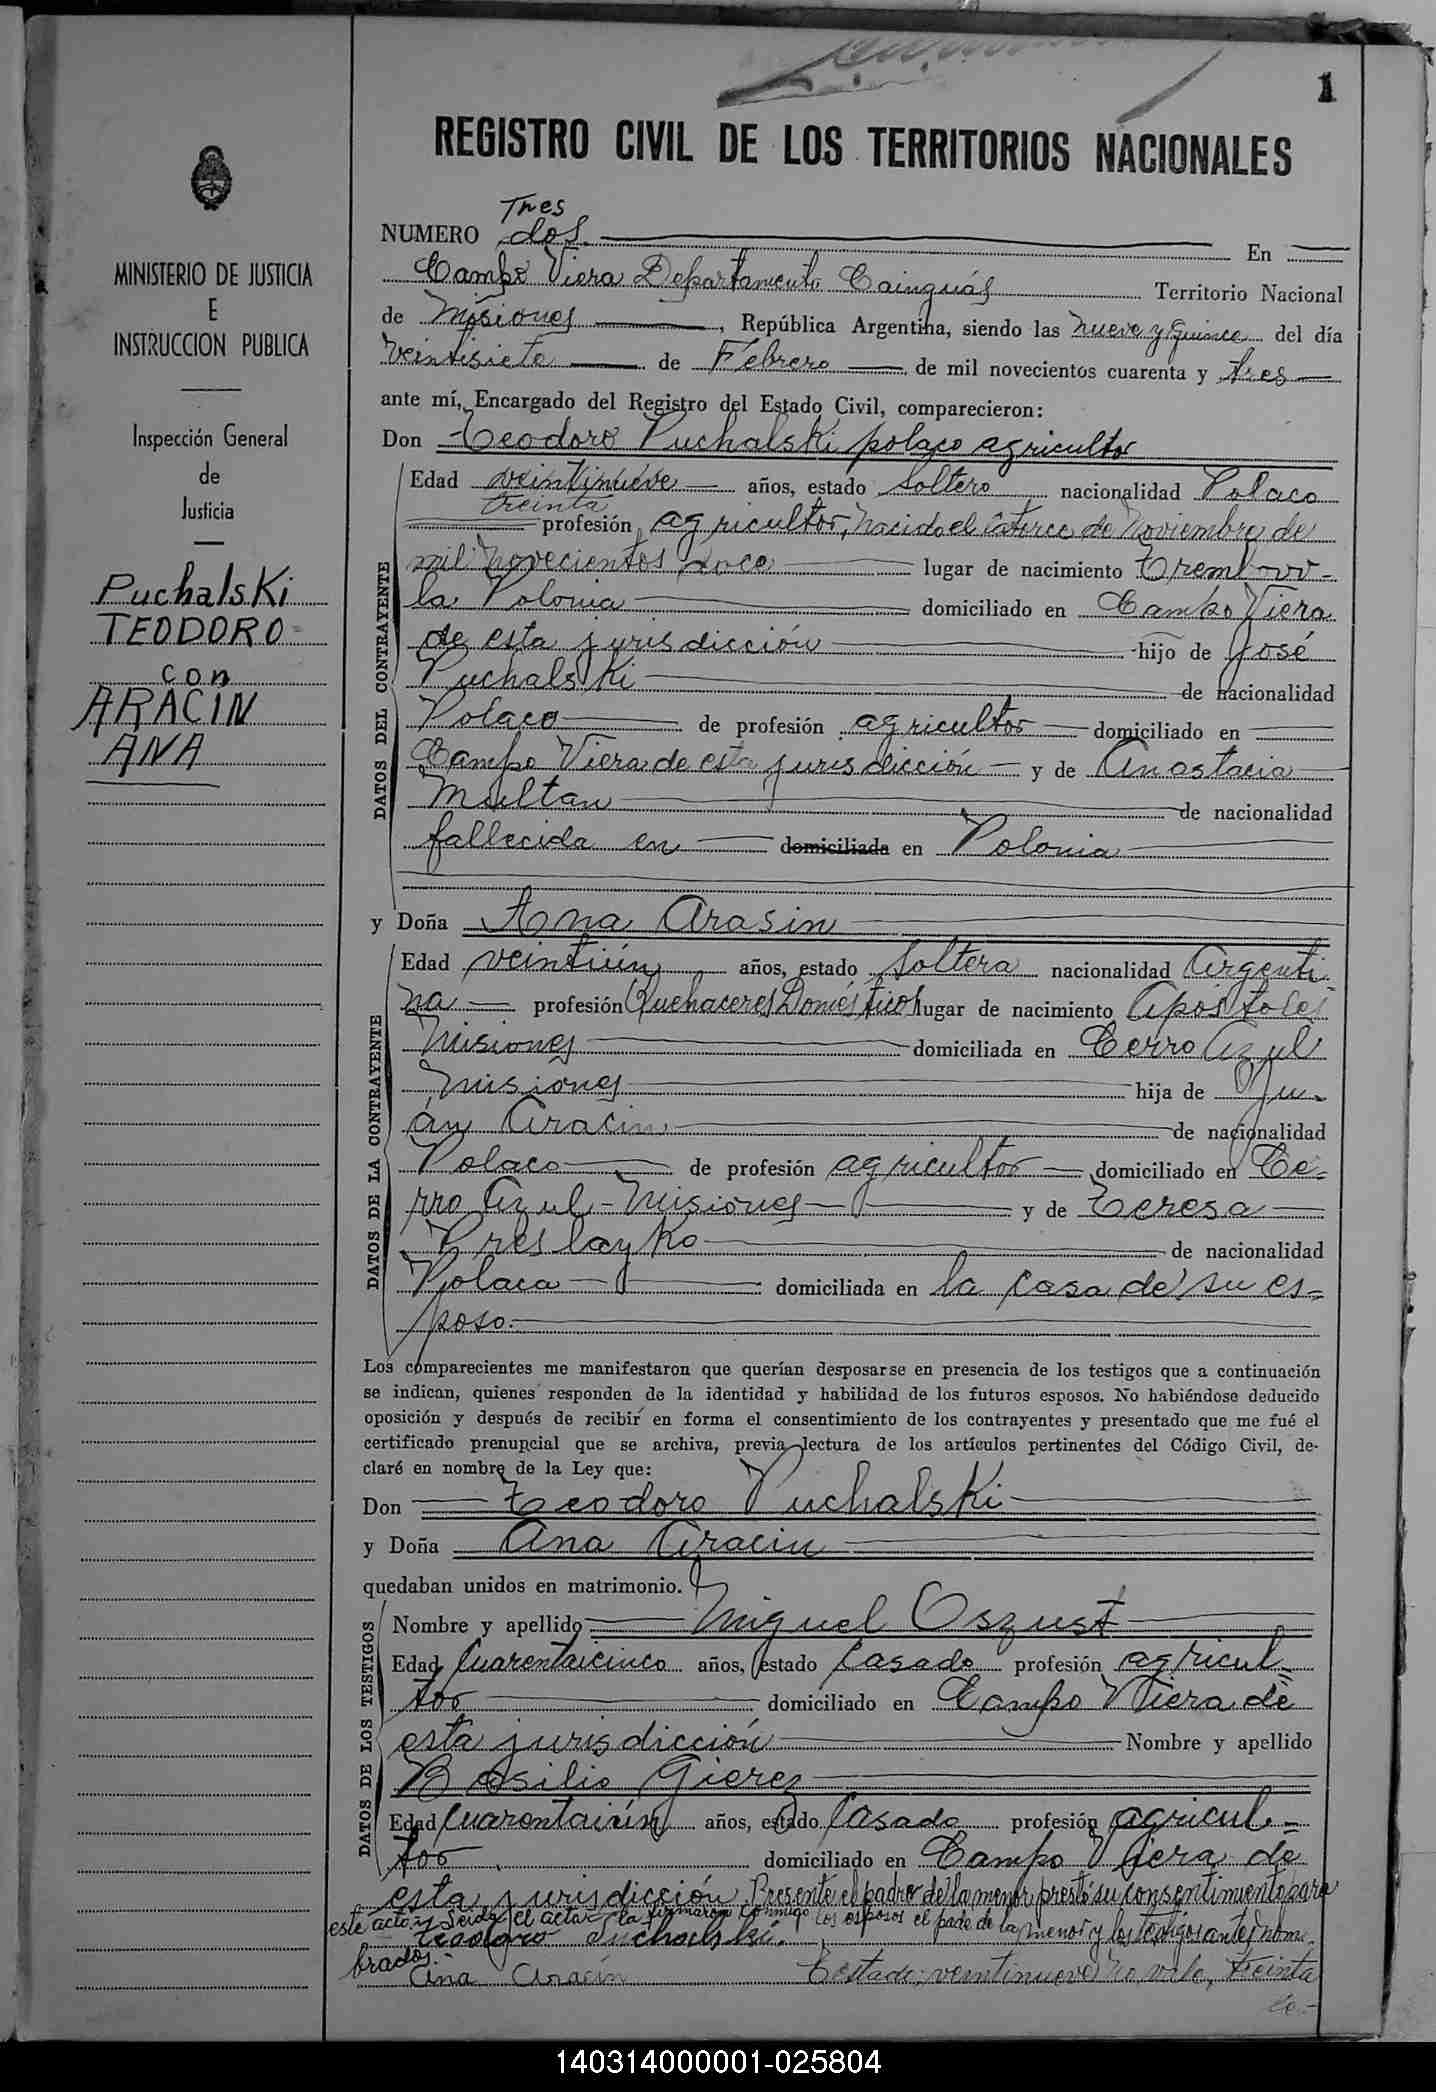 1
REGISTRO CIVIL DE LOS TERRITORIOS NACIONALES
MINISTERIO DE JUSTICIA
E
INSTRUCCION PUBLICA
Inspección General
de
Justicia
Puchalski
TEODORO
con
ARACIN
ANA
Tres
NUMERO dos. En
Campo Viera Departamento Cainguás Territorio Nacional
de Misiones, República Argentina, siendo las nueve y quince del día
veintisiete de Febrero de mil novecientos cuarenta y tres
ante mí, Encargado del Registro del Estado Civil, comparecieron:
Don Teodoro Puchalski polaco agricultor
DATOS DEL CONTRAYENTE
Edad veintinueve años, estado soltero nacionalidad Polaco
treinta
profesión agricultor, nacido el catorce de Noviembre de
mil novecientos doce lugar de nacimiento Trembow-
la Polonia domiciliado en Campo Viera
de esta jurisdicción hijo de José
Puchalski de nacionalidad
Polaco de profesión agricultor domiciliado en
Campo Viera de esta jurisdicción y de Anastacia
Multan de nacionalidad
fallecida en domiciliada en Polonia
y Doña Ana Arasin
DATOS DE LA CONTRAYENTE
Edad veintiún años, estado soltera nacionalidad Argenti-
na profesión Quehaceres Domésticos lugar de nacimiento Apóstoles
Misiones domiciliada en Cerro Azul
Misiones hija de Ju-
an Aracin de nacionalidad
Polaco de profesión agricultor domiciliado en Ce-
rro Azul - Misiones y de Teresa
Preslayko de nacionalidad
Polaca domiciliada en la casa de su es-
poso.
Los comparecientes me manifestaron que querían desposarse en presencia de los testigos que a continuación
se indican, quienes responden de la identidad y habilidad de los futuros esposos. No habiéndose deducido
oposición y después de recibir en forma el consentimiento de los contrayentes y presentado que me fué el
certificado prenupcial que se archiva, previa lectura de los artículos pertinentes del Código Civil, de-
claré en nombre de la Ley que:
Don Teodoro Puchalski
y Doña Ana Aracin
quedaban unidos en matrimonio.
DATOS DE LOS TESTIGOS
Nombre y apellido Miguel Oszust
Edad cuarentaicinco años, estado casado profesión agricul-
tor domiciliado en Campo Viera de
esta jurisdicción Nombre y apellido
Basilio Gierez
Edad cuarentaiún años, estado casado profesión agricul-
tor domiciliado en Campo Viera de
esta jurisdicción. Presente el padre de la menor prestó su consentimiento para
este acto, y leída el acta la firmaron conmigo los esposos el padre de la menor y los testigos antes nom-
brados.
Teodoro Puchalski.
Ana Aracin Testado: veintinueve no vale, treinta
140314000001-025804